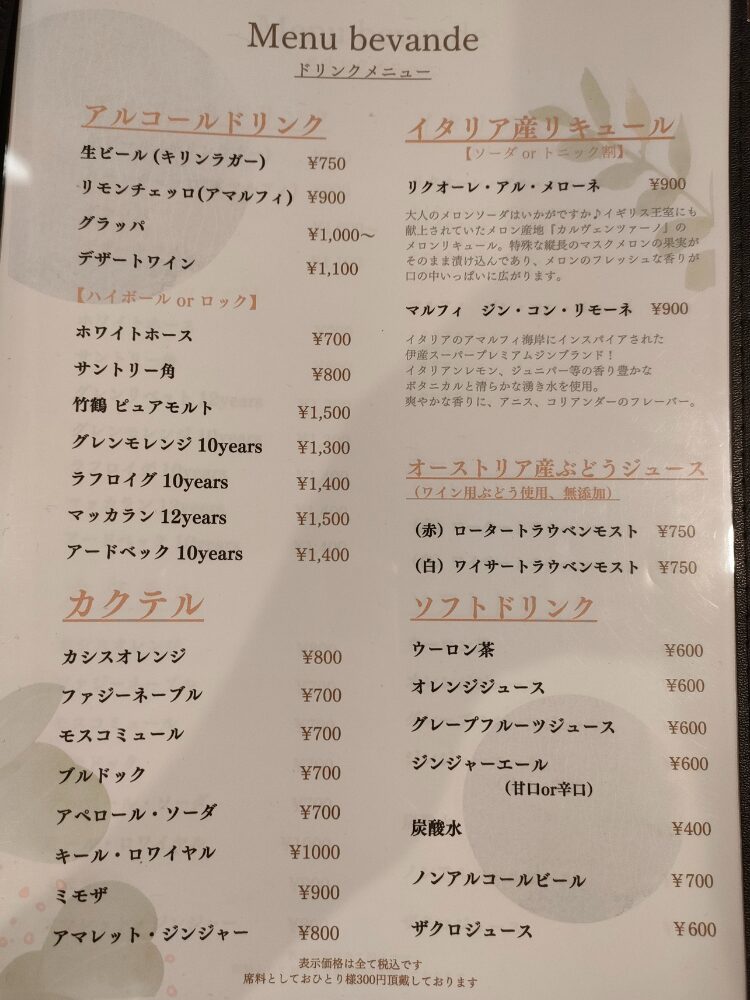 Menu bevande
ドリンクメニュー
アルコールドリンク
生ビール (キリンラガー) ¥750
リモンチェッロ(アマルフィ) ¥900
グラッパ ¥1,000〜
デザートワイン ¥1,100
【ハイボール or ロック】
ホワイトホース ¥700
サントリー角 ¥800
竹鶴 ピュアモルト ¥1,500
グレンモレンジ 10years ¥1,300
ラフロイグ 10years ¥1,400
マッカラン 12years ¥1,500
アードベック 10years ¥1,400
カクテル
カシスオレンジ ¥800
ファジーネーブル ¥700
モスコミュール ¥700
ブルドック ¥700
アペロール・ソーダ ¥700
キール・ロワイヤル ¥1000
ミモザ ¥900
アマレット・ジンジャー ¥800
イタリア産リキュール
【ソーダ or トニック割】
リクオーレ・アル・メローネ ¥900
大人のメロンソーダはいかがですか♪イギリス王室にも
献上されていたメロン産地『カルヴェンツァーノ』の
メロンリキュール。特殊な縦長のマスクメロンの果実が
そのまま漬け込んであり、メロンのフレッシュな香りが
口の中いっぱいに広がります。
マルフィ ジン・コン・リモーネ ¥900
イタリアのアマルフィ海岸にインスパイアされた
伊産スーパープレミアムジンブランド！
イタリアンレモン、ジュニパー等の香り豊かな
ボタニカルと清らかな湧き水を使用。
爽やかな香りに、アニス、コリアンダーのフレーバー。
オーストリア産ぶどうジュース
（ワイン用ぶどう使用、無添加）
（赤）ロータートラウベンモスト ¥750
（白）ワイサートラウベンモスト ¥750
ソフトドリンク
ウーロン茶 ¥600
オレンジジュース ¥600
グレープフルーツジュース ¥600
ジンジャーエール ¥600
（甘口or辛口）
炭酸水 ¥400
ノンアルコールビール ¥700
ザクロジュース ¥600
表示価格は全て税込です
席料としておひとり様300円頂戴しております